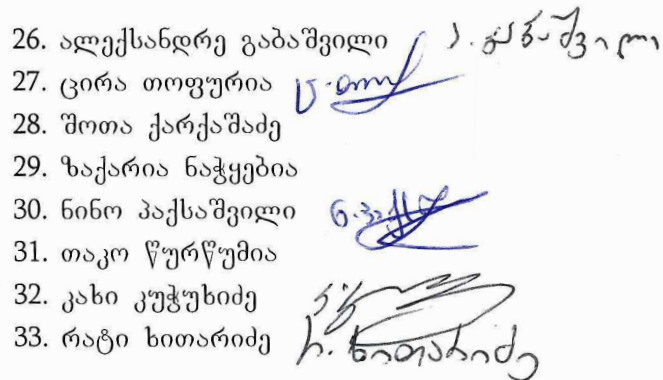 26. ალექსანდრე გაბაშვილი ა. გაბაშვილი
27. ცირა თოფურია
28. შოთა ქარქაშაძე
29. ზაქარია ნაჭყებია
30. ნინო პაქსაშვილი
31. თაკო წურწუმია
32. კახი კუჭუხიძე
33. რატი ხითარიძე რ. ხითარიძე